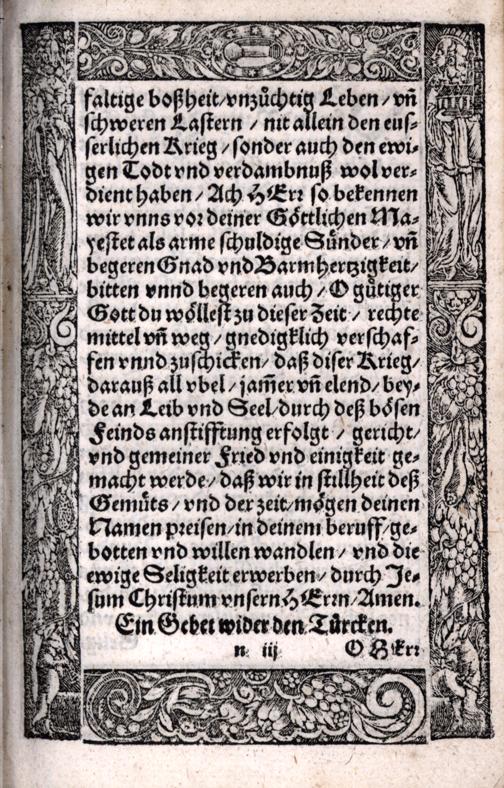 faltige boßheit/ vnzůchtig Leben/ vñ
schweren Lastern / nit allein den eus-
serlichen Krieg/ sonder auch den ewi-
gen Todt vnd verdambnuß wol ver-
dient haben / Ach HErr so bekennen
wir vnns vor deiner Göttlichen Ma-
yestet als arme schuldige Sünder/ vñ
begeren Gnad vnd Barmhertzigkeit/
bitten vnnd begeren auch / O gůtiger
Gott du wöllest zu dieser Zeit / rechte
mittel vñ weg / gnedigklich verschaf-
fen vnnd zuschicken/ daß diser Krieg/
darauß all vbel / jam̃er vñ elend/ bey-
de an Leib vnd Seel/ durch deß bösen
Feinds anstifftung erfolgt / gericht/
vnd gemeiner Fried vnd einigkeit ge-
macht werde/ daß wir in stillheit deß
Gemüts / vnd der zeit/ mögen deinen
Namen preisen/ in deinem beruff/ ge-
botten vnd willen wandlen/ vnd die
ewige Seligkeit erwerben/ durch Je-
sum Christum vnsern HErrn/ Amen.
Ein Gebet wider den Türcken.
n iij O HErr